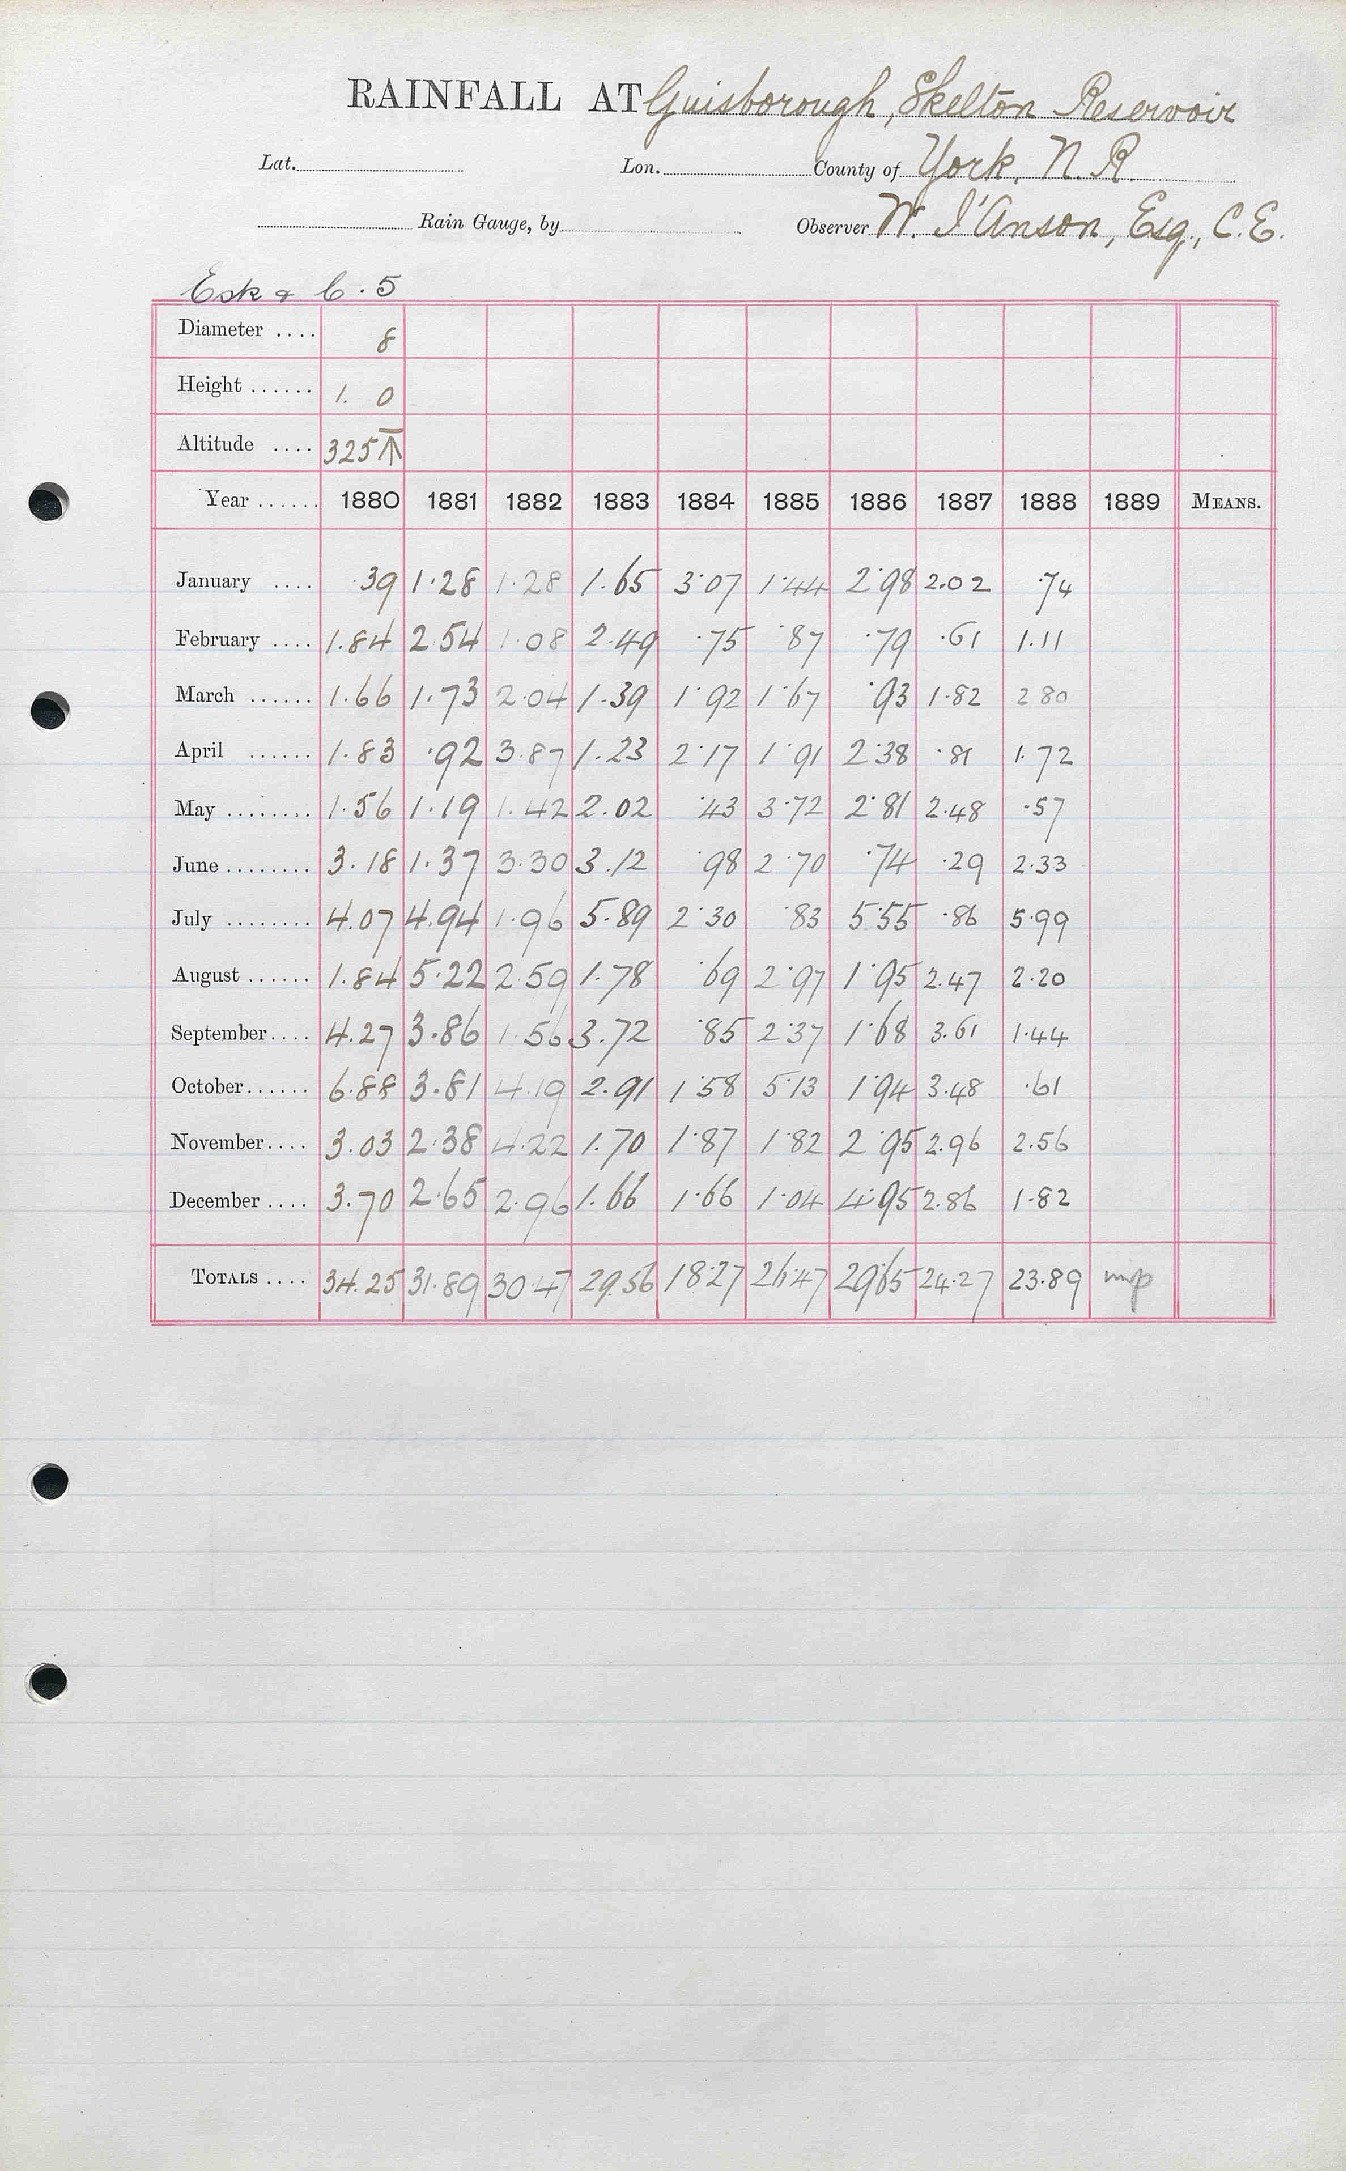 RAINFALL AT Guisborough, Skelton Reservoir
Lat. Lon. County of York. N. R.
Rain Gauge, by Observer W. I'Anson, Esq., C.E.
Esk & C. 5
Diameter .... 8
Height ...... 1. 0
Altitude .... 325
Year ...... 1880 1881 1882 1883 1884 1885 1886 1887 1888 1889 MEANS.
January .... .39 1.28 1.28 1.65 3.07 1.44 2.98 2.02 .74
February .... 1.84 2.54 1.08 2.49 .75 .87 .79 .61 1.11
March ...... 1.66 1.73 2.04 1.39 1.92 1.67 .93 1.82 2.80
April ...... 1.83 .92 3.87 1.23 2.17 1.91 2.38 .81 1.72
May ........ 1.56 1.19 1.42 2.02 .43 3.72 2.81 2.48 .57
June ........ 3.18 1.37 3.30 3.12 .98 2.70 .74 .29 2.33
July ........ 4.07 4.94 1.96 5.89 2.30 .83 5.55 .86 5.99
August ...... 1.84 5.22 2.59 1.78 .69 2.97 1.95 2.47 2.20
September .... 4.27 3.86 1.56 3.72 .85 2.37 1.68 3.61 1.44
October ...... 6.88 3.81 4.19 2.91 1.58 5.13 1.94 3.48 .61
November .... 3.03 2.38 4.22 1.70 1.87 1.82 2.95 2.96 2.56
December .... 3.70 2.65 2.96 1.66 1.66 1.04 4.95 2.86 1.82
TOTALS .... 34.25 31.89 30.47 29.56 18.27 26.47 29.65 24.27 23.89